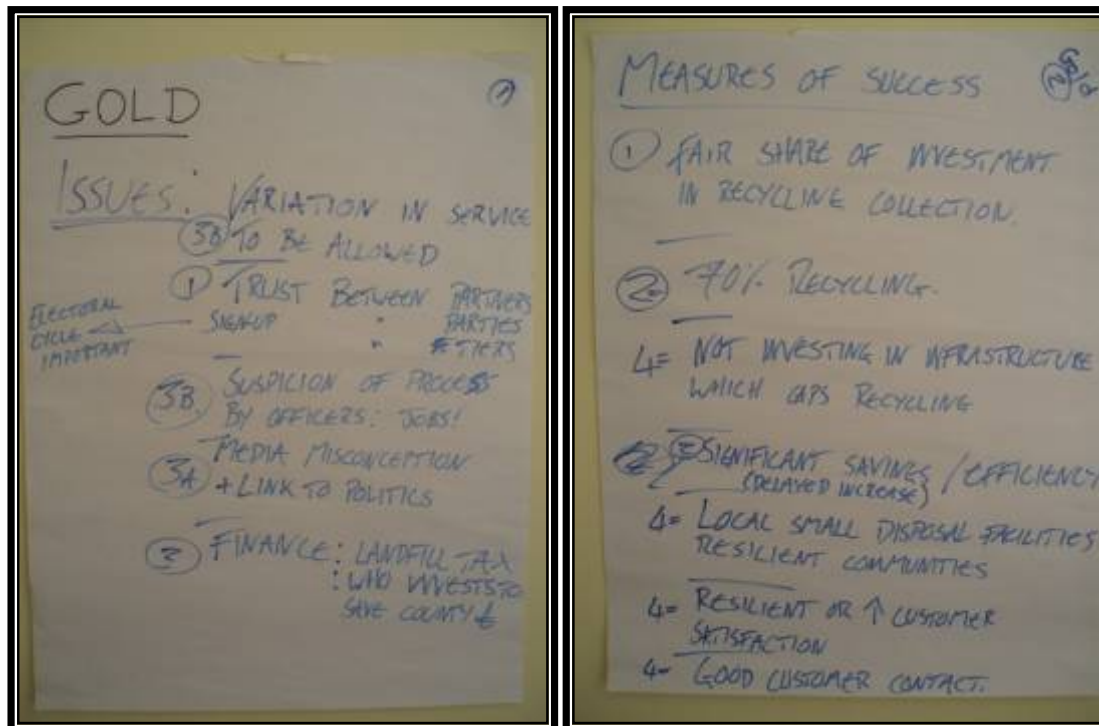 GOLD
1
ISSUES: VARIATION IN SERVICE
3B TO BE ALLOWED
1 TRUST BETWEEN PARTNERS
SIGN-UP " PARTIES
" TIERS
ELECTORAL
CYCLE
IMPORTANT
3B SUSPICION OF PROCESS
BY OFFICERS: JOBS!
3A MEDIA MISCONCEPTION
+ LINK TO POLITICS
2 FINANCE: LANDFILL TAX
: WHO INVESTS TO
SAVE COUNTY £
MEASURES OF SUCCESS
2
1 FAIR SHARE OF INVESTMENT
IN RECYCLING COLLECTION.
2 70% RECYCLING.
4= NOT INVESTING IN INFRASTRUCTURE
WHICH CAPS RECYCLING
SIGNIFICANT SAVINGS / EFFICIENCY
(DELAYED INCREASE)
4= LOCAL SMALL DISPOSAL FACILITIES
RESILIENT COMMUNITIES
4= RESILIENT OR ↑ CUSTOMER
SATISFACTION
4= GOOD CUSTOMER CONTACT.